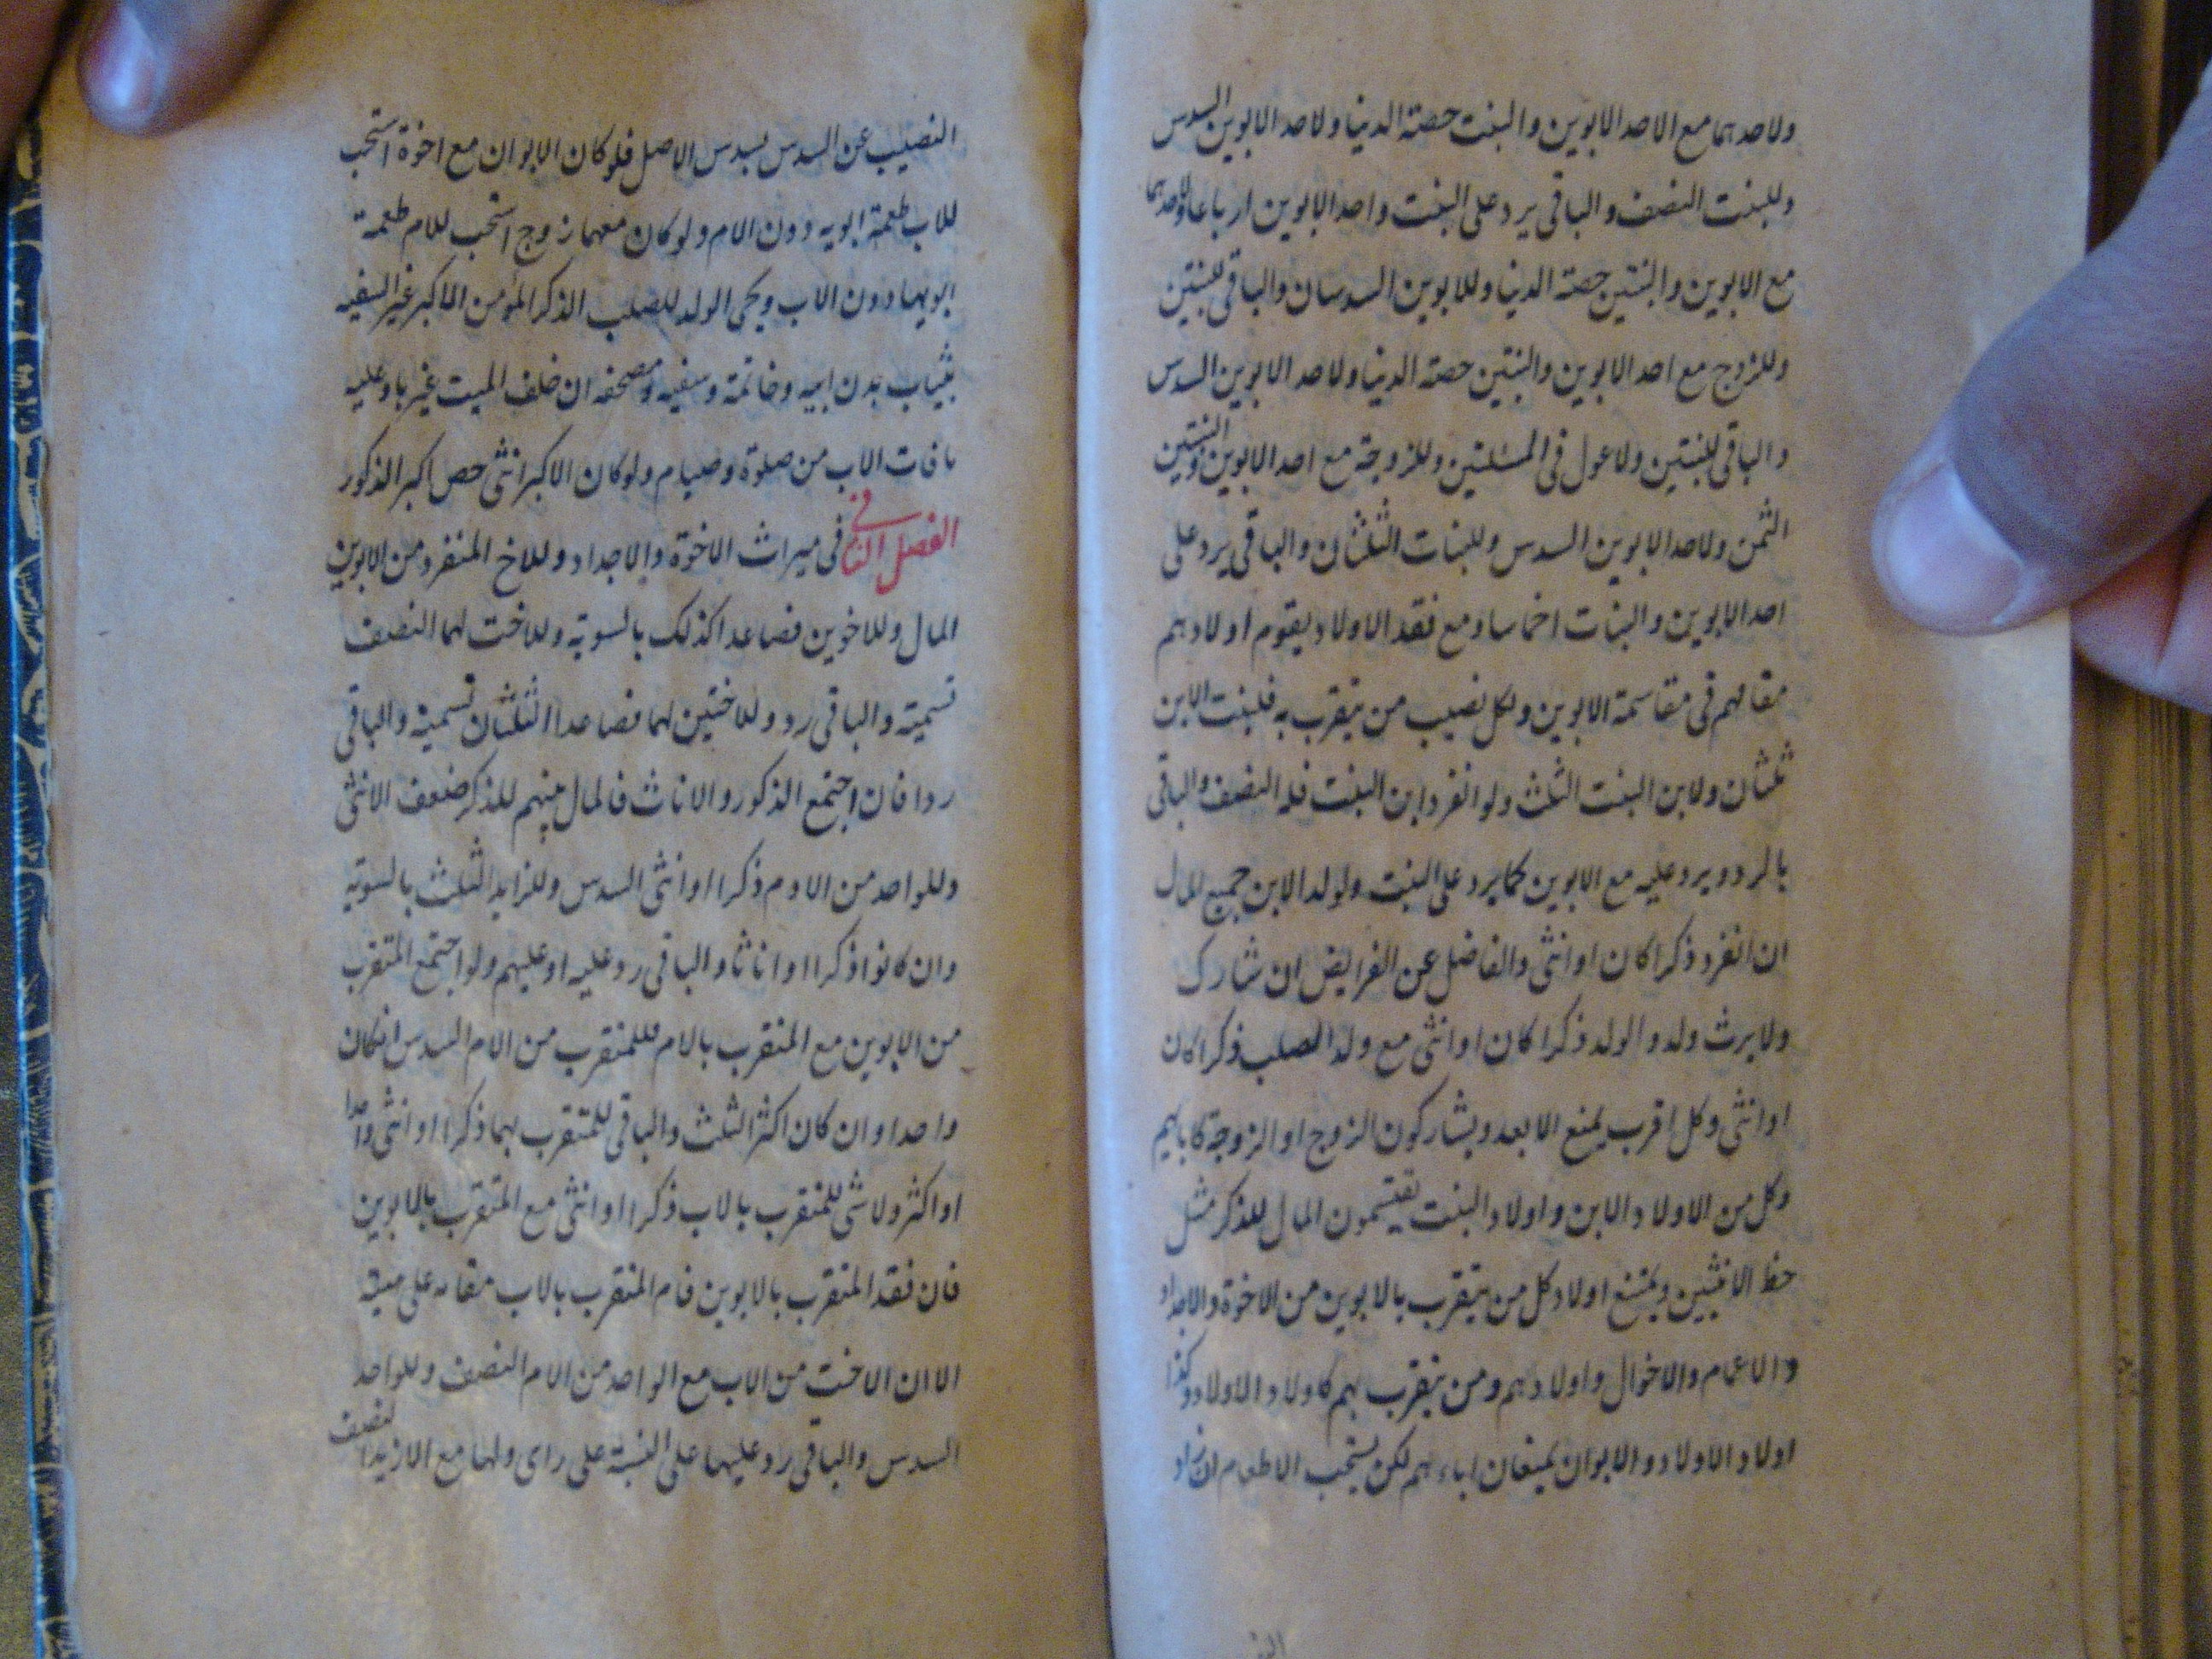 ولاحدهما مع الاحد الابوين والبنت حصته الدنيا ولاحد الابوين السدس
وللبنت النصف والباقى يرد على البنت واحد الابوين ارباعا ولاحدهما
مع الابوين والبنتين حصته الدنيا وللابوين السدسان والباقى للبنتين
وللزوج مع احد الابوين والبنتين حصته الدنيا ولاحد الابوين السدس
والباقى للبنتين ولاعول فى المسئلتين وللزوجة مع احد الابوين والبنتين
الثمن ولاحد الابوين السدس وللبنات الثلثان والباقى يرد على
احد الابوين والبنات اخماسا ومع فقد الاولاد يقوم اولادهم
مقامهم فى مقاسمة الابوين ولكل نصيب من يتقرب به فلبنت الابن
ثلثان ولابن البنت الثلث ولو انفرد ابن البنت فله النصف والباقى
بالرد ويرد عليه مع الابوين كما يرد على البنت ولولد الابن جميع المال
ان انفرد ذكرا كان او انثى والفاضل عن الفرايض ان شارك
ولا يرث ولد والولد ذكرا كان او انثى مع ولد الصلب ذكرا كان
او انثى وكل اقرب يمنع الابعد ويشاركون الزوج او الزوجة كابايهم
وكل من الاولاد الابن واولاد البنت يقتسمون المال للذكر مثل
حظ الانثيين ويمنع اولاد كل من يتقرب بالابوين من الاخوة والاجداد
والاعمام والاخوال واولادهم ومن يتقرب بهم كاولاد الاولاد وكذا
اولاد الاولاد والابوان يمنعان اباءهم لكن يستحب الاطعام ان زاد
النصيب عن السدس بسدس الاصل فلو كان الابوان مع اخوة استحب
للاب طعمة ابويه دون الام ولو كان معهما زوج استحب للام طعمة
ابويها دون الاب ويحبى الولد للصلب الذكر المؤمن الاكبر غير السفيه
بثياب بدن ابيه وخاتمه وسيفه ومصحفه ان خلف الميت غيرها وعليه
ما فات الاب من صلوة وصيام ولو كان الاكبر انثى خص اكبر الذكور
الفصل الثانى فى ميراث الاخوة والاجداد وللاخ المنفرد من الابوين
المال وللاخوين فصاعدا كذلك بالسوية وللاخت لهما النصف
تسمية والباقى رد وللاختين لهما فصاعدا الثلثان تسمية والباقى
ردا فان اجتمع الذكور والاناث فالمال بينهم للذكر ضعف الانثى
وللواحد من الام ذكرا او انثى السدس وللزايد الثلث بالسوية
وان كانوا ذكرا او اناثا والباقى رد عليه او عليهم ولو اجتمع المتقرب
من الابوين مع المتقرب بالام فللمتقرب من الام السدس انكان
واحدا وان كان اكثر الثلث والباقى للمتقرب بهما ذكرا او انثى واحدا
او اكثر ولا شى للمتقرب بالاب ذكرا او انثى مع المتقرب بالابوين
فان فقد المتقرب بالابوين قام المتقرب بالاب مقامه على هيئته
الا ان الاخت من الاب مع الواحد من الام النصف وللواحد
السدس والباقى رد عليهما على النسبة على راى ولها مع الازيد النصف